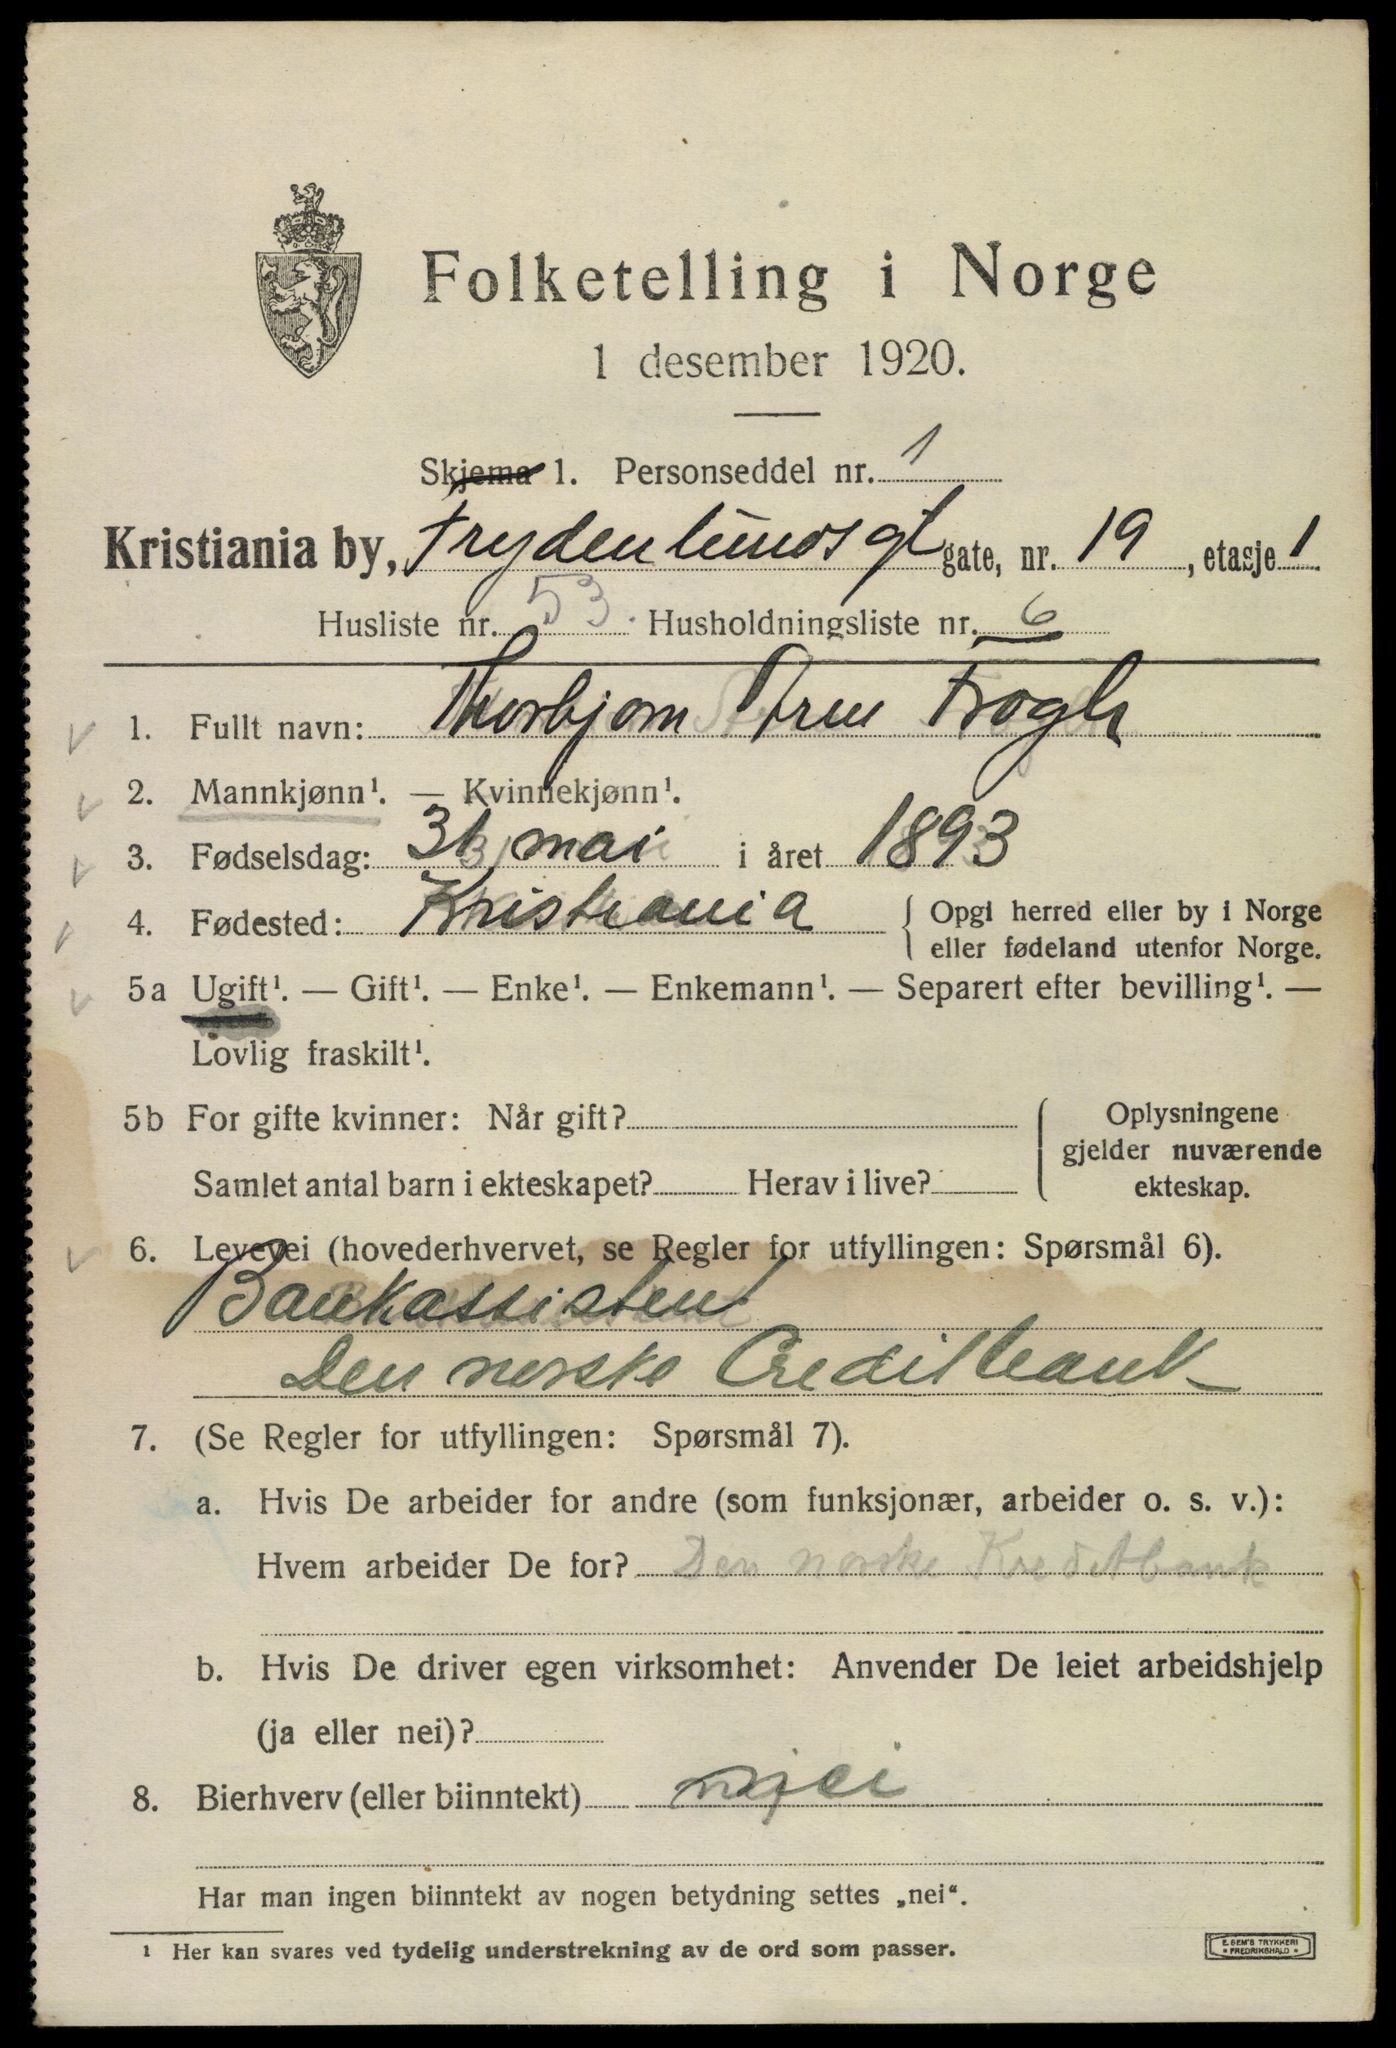 Folketelling i Norge
1 desember 1920.
Skjema 1. Personseddel nr. 1
Kristiania by, Frydenlundsgt gate, nr. 19, etasje 1
Husliste nr. 53. Husholdningsliste nr. 6
1. Fullt navn: Thorbjørn Frogh
2. Mannkjønn¹. — Kvinnekjønn¹.
3. Fødselsdag: 31 mai i året 1893
4. Fødested: Kristiania { Opgi herred eller by i Norge
eller fødeland utenfor Norge.
5a Ugift¹. — Gift¹. — Enke¹. — Enkemann¹. — Separert efter bevilling¹. —
Lovlig fraskilt¹.
5b For gifte kvinner: Når gift?
Samlet antal barn i ekteskapet? Herav i live?
{ Oplysningene
gjelder nuværende
ekteskap.
6. Levevei (hovederhvervet, se Regler for utfyllingen: Spørsmål 6).
Bankassistent
Den norske Creditbank
7. (Se Regler for utfyllingen: Spørsmål 7).
a. Hvis De arbeider for andre (som funksjonær, arbeider o. s. v.):
Hvem arbeider De for? Den norske Kreditbank
b. Hvis De driver egen virksomhet: Anvender De leiet arbeidshjelp
(ja eller nei)?
8. Bierhverv (eller biinntekt) nei
Har man ingen biinntekt av nogen betydning settes „nei“.
¹ Her kan svares ved tydelig understrekning av de ord som passer.
E. SEM'S TRYKKERI
• FREDRIKSHALD •